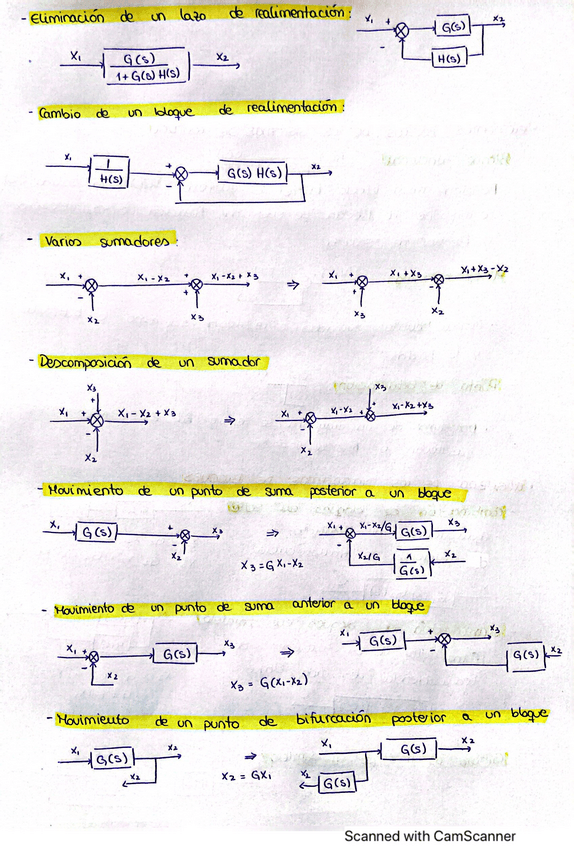 - Eliminación de un lazo de realimentación:
X₁ + - G(s) X₂
H(s)
X₁ G(s) / 1+G(s)H(s) X₂
- Cambio de un bloque de realimentación:
X₁ 1/H(s) + - G(s) H(s) X₂
- Varios sumadores:
X₁ + - X₁-X₂ + + X₁-X₂+X₃ ⇒ X₁ + + X₁+X₃ - X₁+X₃-X₂
X₂ X₃ X₃ X₂
- Descomposición de un sumador
X₃ X₃
X₁ + + - X₁-X₂+X₃ ⇒ X₁ + - X₁-X₂ + + X₁-X₂+X₃
X₂ X₂
- Movimiento de un punto de suma posterior a un bloque
X₁ G(s) + - X₃ ⇒ X₁ + - X₁-X₂/G G(s) X₃
X₂ X₂/G 1/G(s) X₂
X₃=GX₁-X₂
- Movimiento de un punto de suma anterior a un bloque
X₁ + - G(s) X₃ ⇒ X₁ G(s) + - X₃
X₂ G(s) X₂
X₃ = G(X₁-X₂)
- Movimiento de un punto de bifurcación posterior a un bloque
X₁ G(s) X₂ ⇒ X₁ G(s) X₂
X₂ X₂ = GX₁ X₂ G(s)
Scanned with CamScanner